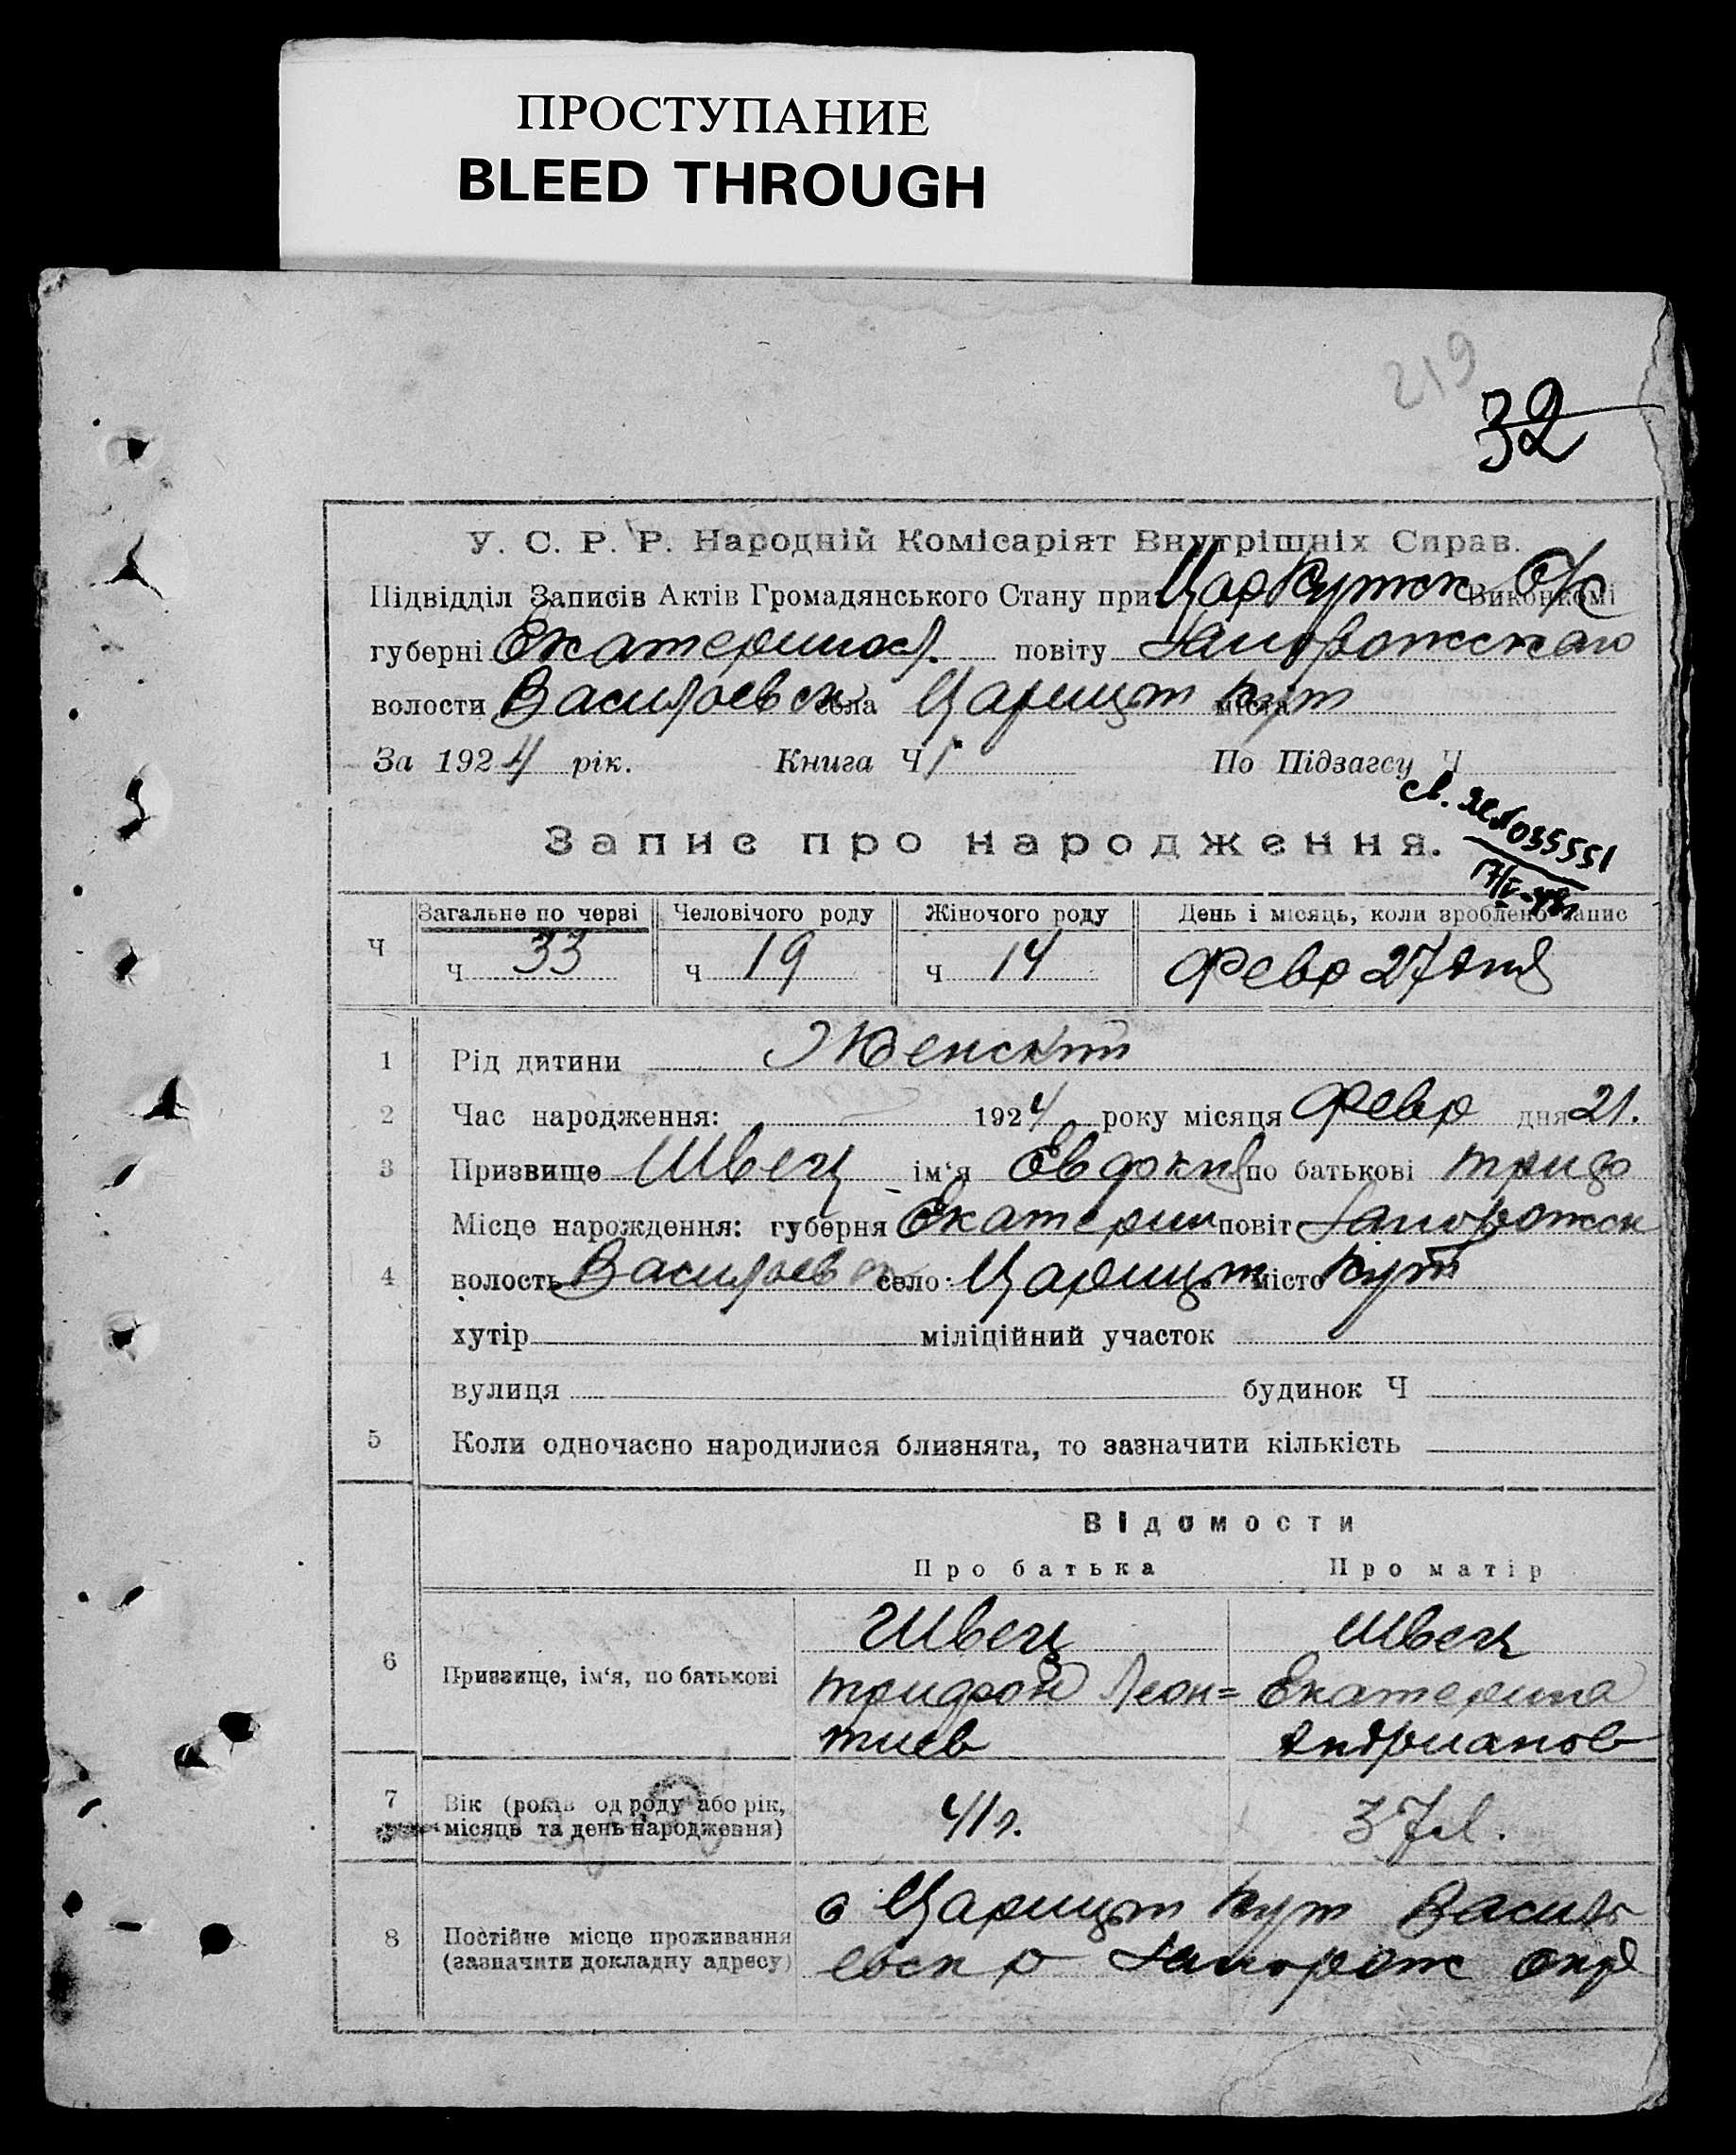 ПРОСТУПАНИЕ
BLEED THROUGH
219
32
У. С. Р. Р. Народній Комісаріят Внутрішніх Справ.
Підвідділ Записів Актів Громадянського Стану при ЦарКутск С/С Виконкомі
губерні Екатериносл. повіту Запорожскаго
волости Васильевск села Царицын міста Кут
За 1924 рік. Книга Ч 1 По Підзагсу Ч
св. ЯЕ № 035551
Запис про народження.
Загальне по черзі Человічого роду Жіночого роду День і місяць, коли зроблено запис
Ч ч 33 ч 19 ч 14 Февр 27 дня
1 Рід дитини Женский
2 Час народження: 1924 року місяця Февр дня 21.
3 Призвище Швец ім‘я Евдокия по батькові Триф
Місце народження: губерня Екатерин повіт Запорожск
4 волость Васильевск село: Царицын місто Кут
хутір міліційний участок
вулиця будинок Ч
5 Коли одночасно народилися близнята, то зазначити кількість
Відомости
Про батька Про матір
Швец Швец
6 Призвище, ім‘я, по батькові Трифон Леон= Екатерина
тиев Андрианов
7 Вік (років од роду або рік, місяць та день народження) 41 г. 37 л.
с Царицын Кут Василь
8 Постійне місце проживання (зазначити докладну адресу) евск р Запорож окр